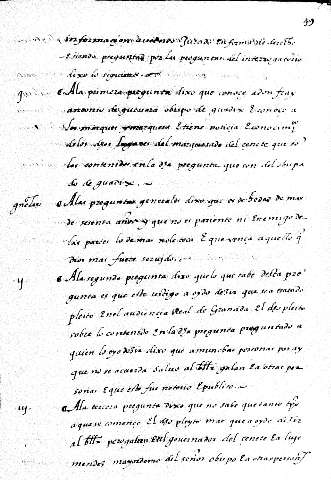 49
informacion jurado en forma de derecho
siendo preguntado por las preguntas del interrogatorio
dixo lo siguiente
A la primera pregunta dixo que conoce a don fray
antonio de guevara obispo de guadix E conoce a
los marques y marquesa E tiene noticia E conocim
de los lugares del marquesado del cenete que so
los contenidos en la dha pregunta que son del obispa
do de guadix
A las preguntas generales dixo que es de hedad de mas
de sesenta años y que no es pariente ni Enemigo de
las partes lo demas no le toca E que vença a quello q
dios mas fuere servido
ij
A la segunda pregunta dixo que lo que sabe desta pre
gunta es que este testigo a oydo dezir que se a tratado
pleito En el audiencia Real de Granada El dho pleito
sobre lo contenido En la dha pregunta preguntado a
quien lo oyo dezir dixo que a muchas personas por ay
que no se acuerda salvo al galan E a otras per
sonas E que esto fue notorio E publico
iij
A la tercera pregunta dixo que no sabe que tanto tpo
a que se començo El dho pleyto mas que a oydo dezir
al bllr pero galan E al governador del cenete E a luys
mendez mayordomo del señor obispo E a otras person